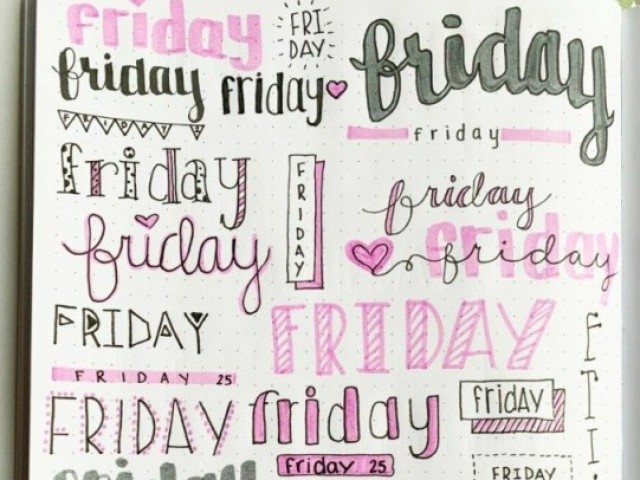 friday
FRI
DAY
friday
friday
friday
FRIDAY
friday
friday
FRIDAY
friday
friday
friday
friday
FRIDAY
FRIDAY
FRIDAY 25
FRIDAY
friday
friDAY
friday 25
FRIDAY
friday
FRI